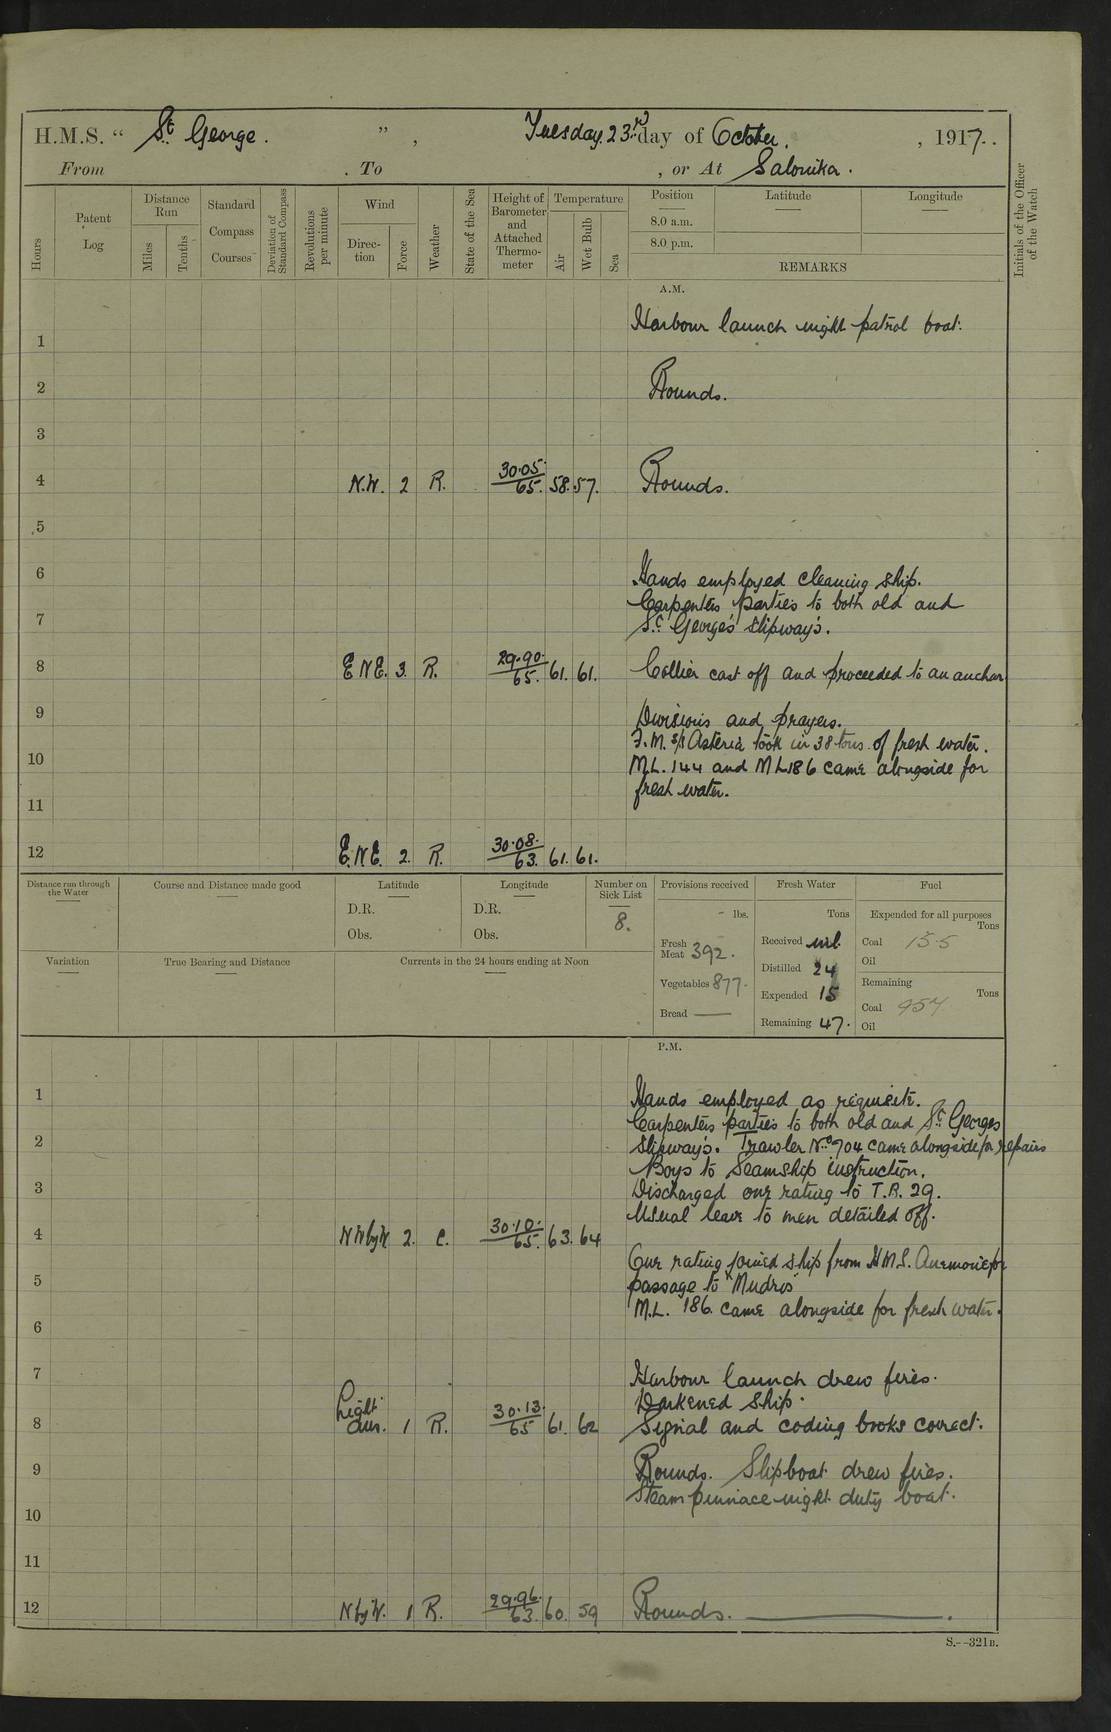 H.M.S. " St George. ", Tuesday. 23rd day of October, 1917..
From . To , or At Salonika.
Hours
Patent Log
Distance Run
Miles
Tenths
Standard Compass Courses
Deviation of Standard Compass
Revolutions per minute
Wind
Direc-tion
Force
Weather
State of the Sea
Height of Barometer and Attached Thermo-meter
Temperature
Air
Wet Bulb
Sea
Position
Latitude
Longitude
8.0 a.m.
8.0 p.m.
REMARKS
Initials of the Officer of the Watch
A.M.
Harbour launch night patrol boat.
1
2 Rounds.
3
4 N.W. 2 R. 30.05 65. 58. 57. Rounds.
5
6 Hands employed cleaning ship.
Carpenters parties to both old and
7 St George's slipway's.
8 E N E. 3. R. 29.90. 65. 61. 61. Collier cast off and proceeded to an anchor
9 Divisions and prayers.
F.M. s/s Asteria took in 38 tons of fresh water.
10 M.L. 144 and M L 186 came alongside for
fresh water.
11
12 E. N E. 2. R. 30.08. 63. 61. 61.
Distance run through the Water
Course and Distance made good
Latitude
D.R.
Obs.
Longitude
D.R.
Obs.
Number on Sick List
8.
Provisions received
- lbs.
Fresh Meat 392.
Vegetables 877.
Bread —
Fresh Water
Tons
Received nil.
Distilled 24
Expended 15
Remaining 47.
Fuel
Expended for all purposes
Tons
Coal 15.5
Oil
Remaining
Tons
Coal 957
Oil
Variation
True Bearing and Distance
Currents in the 24 hours ending at Noon
P.M.
1 Hands employed as requisite.
Carpenters parties to both old and St Georges
2 Slipway's. Trawler No 704 came alongside for repairs
Boys to Seamship instruction.
3 Discharged one rating to T.R. 29.
Usual leave to men detailed off.
4 N W by W 2. C. 30.10. 65. 63. 64
One rating joined ship from H M S. Anemone for
5 passage to "Mudros"
M.L. 186. came alongside for fresh water.
6
7 Harbour launch drew fires.
Darkened ship.
8 Light airs. 1 R. 30.13. 65 61. 62 Signal and coding books correct.
9 Rounds. Slipboat drew fires.
Steam pinnace night duty boat.
10
11
12 N by W. 1 R. 29.96. 63. 60. 59 Rounds.
S.--321B.